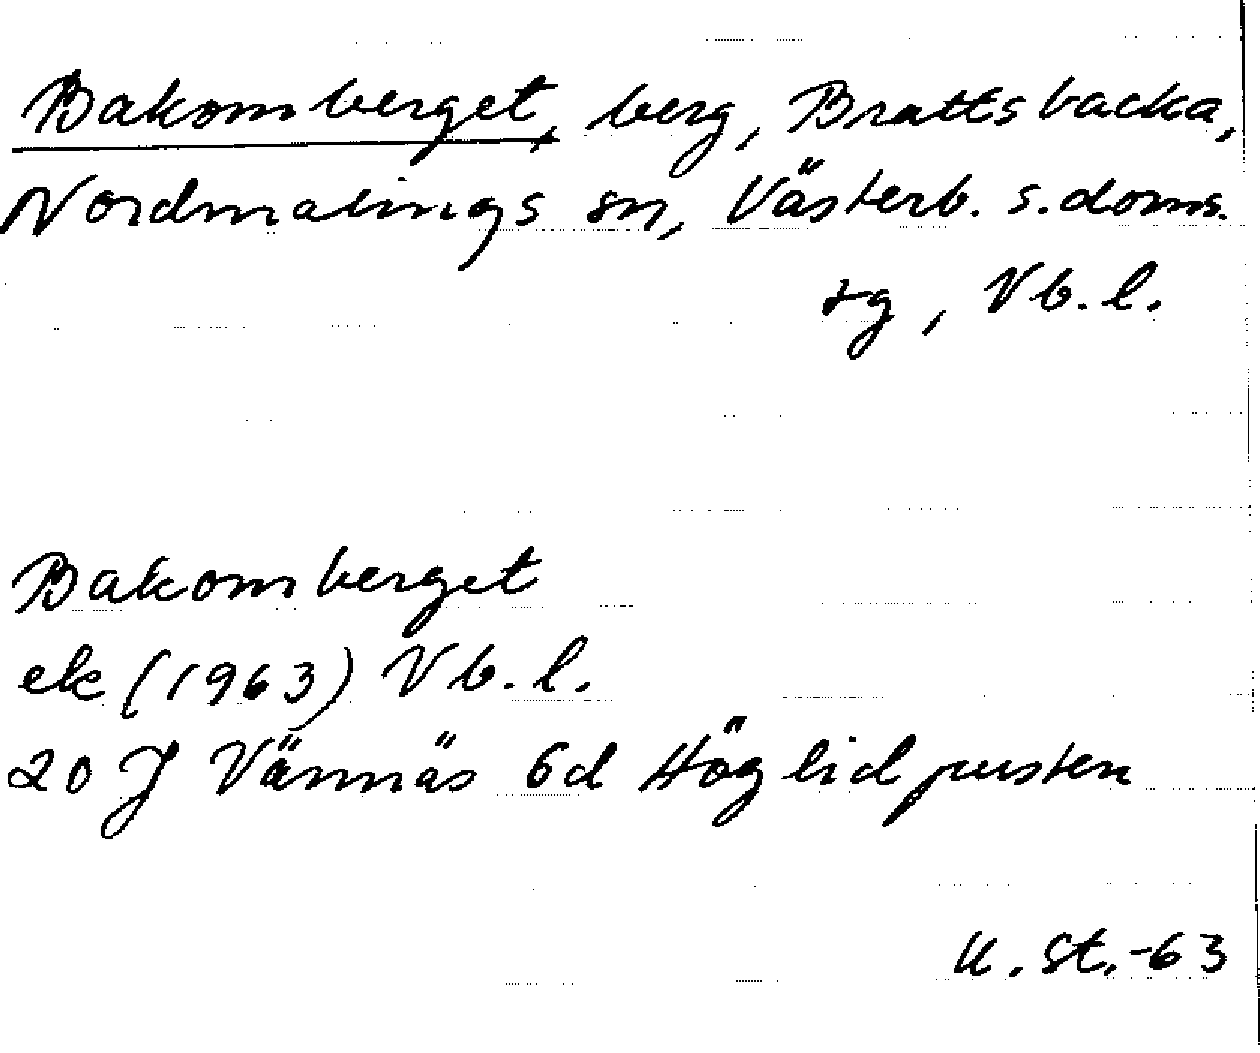 Bakomberget, berg, Brattsbacka,
Nordmalings sn, Västerb. s. doms.
sg, Vb. l.
Bakomberget
ek (1963) Vb. l.
20 J Vännäs 6d Höglidpusten
U. St. -63